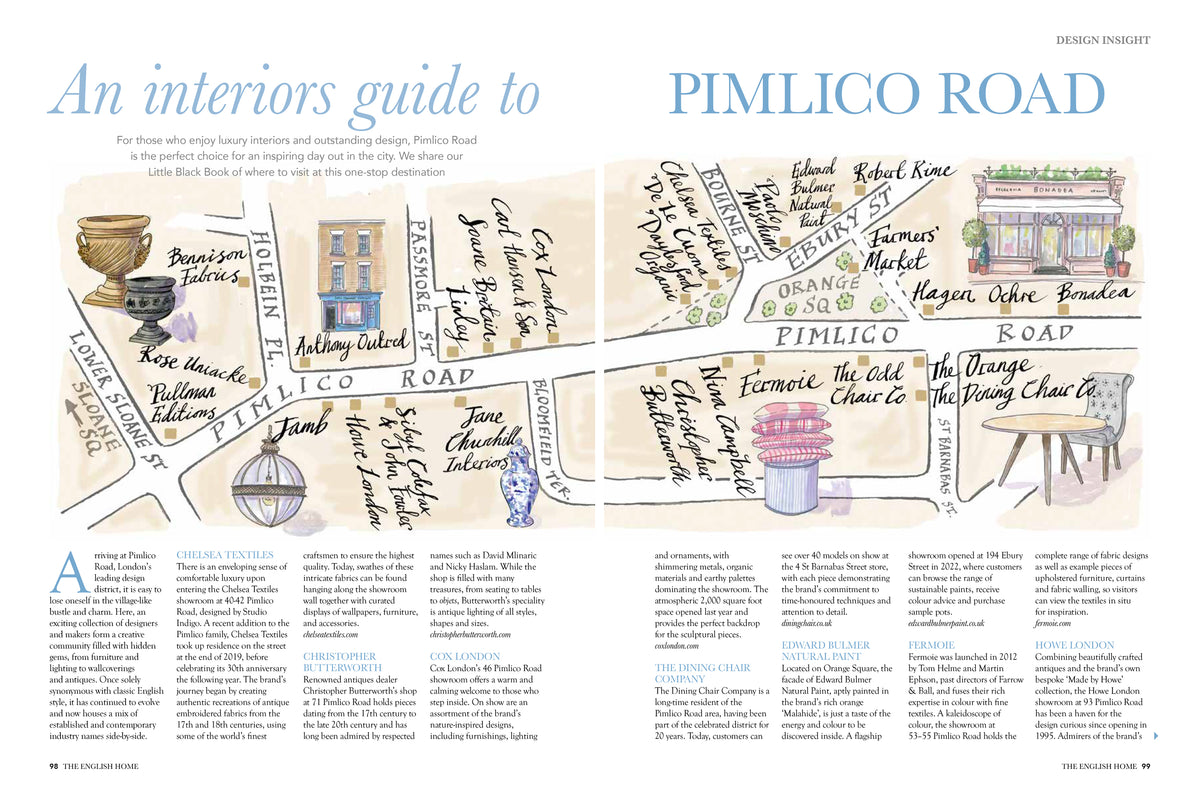 DESIGN INSIGHT
An interiors guide to
PIMLICO ROAD
For those who enjoy luxury interiors and outstanding design, Pimlico Road
is the perfect choice for an inspiring day out in the city. We share our
Little Black Book of where to visit at this one-stop destination
Bennison
Fabrics
HOLBEIN PL.
PASSMORE ST
Linley
Soane Britain
Carl Hansen & Son
Cox London
Anthony Outred
Rose Uniacke
Pullman
Editions
LOWER SLOANE ST
SLOANE
SQ
PIMLICO ROAD
Jamb
Howe London
Sibyl Colefax
& John Fowler
Jane
Churchill
Interiors
BLOOMFIELD TER.
Chelsea Textiles
De Le Cuona
Daylesford
Organic
BOURNE ST
Paolo
Moschino
Edward
Bulmer
Natural
Paint
Robert Kime
EBURY ST
Farmers'
Market
ORANGE
SQ
BONADEA
Hagen
Ochre
Bonadea
PIMLICO ROAD
Christopher
Butterworth
Nina Campbell
Fermoie
The Odd
Chair Co.
The Orange
The Dining Chair Co.
ST BARNABAS ST.
Arriving at Pimlico
Road, London's
leading design
district, it is easy to
lose oneself in the village-like
bustle and charm. Here, an
exciting collection of designers
and makers form a creative
community filled with hidden
gems, from furniture and
lighting to wallcoverings
and antiques. Once solely
synonymous with classic English
style, it has continued to evolve
and now houses a mix of
established and contemporary
industry names side-by-side.
CHELSEA TEXTILES
There is an enveloping sense of
comfortable luxury upon
entering the Chelsea Textiles
showroom at 40-42 Pimlico
Road, designed by Studio
Indigo. A recent addition to the
Pimlico family, Chelsea Textiles
took up residence on the street
at the end of 2019, before
celebrating its 30th anniversary
the following year. The brand's
journey began by creating
authentic recreations of antique
embroidered fabrics from the
17th and 18th centuries, using
some of the world's finest
craftsmen to ensure the highest
quality. Today, swathes of these
intricate fabrics can be found
hanging along the showroom
wall together with curated
displays of wallpapers, furniture,
and accessories.
chelseatextiles.com
CHRISTOPHER
BUTTERWORTH
Renowned antiques dealer
Christopher Butterworth's shop
at 71 Pimlico Road holds pieces
dating from the 17th century to
the late 20th century and has
long been admired by respected
names such as David Mlinaric
and Nicky Haslam. While the
shop is filled with many
treasures, from seating to tables
to objets, Butterworth's speciality
is antique lighting of all styles,
shapes and sizes.
christopherbutterworth.com
COX LONDON
Cox London's 46 Pimlico Road
showroom offers a warm and
calming welcome to those who
step inside. On show are an
assortment of the brand's
nature-inspired designs,
including furnishings, lighting
and ornaments, with
shimmering metals, organic
materials and earthy palettes
dominating the showroom. The
atmospheric 2,000 square foot
space opened last year and
provides the perfect backdrop
for the sculptural pieces.
coxlondon.com
THE DINING CHAIR
COMPANY
The Dining Chair Company is a
long-time resident of the
Pimlico Road area, having been
part of the celebrated district for
20 years. Today, customers can
see over 40 models on show at
the 4 St Barnabas Street store,
with each piece demonstrating
the brand's commitment to
time-honoured techniques and
attention to detail.
diningchair.co.uk
EDWARD BULMER
NATURAL PAINT
Located on Orange Square, the
facade of Edward Bulmer
Natural Paint, aptly painted in
the brand's rich orange
'Malahide', is just a taste of the
energy and colour to be
discovered inside. A flagship
showroom opened at 194 Ebury
Street in 2022, where customers
can browse the range of
sustainable paints, receive
colour advice and purchase
sample pots.
edwardbulmerpaint.co.uk
FERMOIE
Fermoie was launched in 2012
by Tom Helme and Martin
Ephson, past directors of Farrow
& Ball, and fuses their rich
expertise in colour with fine
textiles. A kaleidoscope of
colour, the showroom at
53–55 Pimlico Road holds the
complete range of fabric designs
as well as example pieces of
upholstered furniture, curtains
and fabric walling, so visitors
can view the textiles in situ
for inspiration.
fermoie.com
HOWE LONDON
Combining beautifully crafted
antiques and the brand's own
bespoke 'Made by Howe'
collection, the Howe London
showroom at 93 Pimlico Road
has been a haven for the
design curious since opening in
1995. Admirers of the brand's
98 THE ENGLISH HOME
THE ENGLISH HOME 99